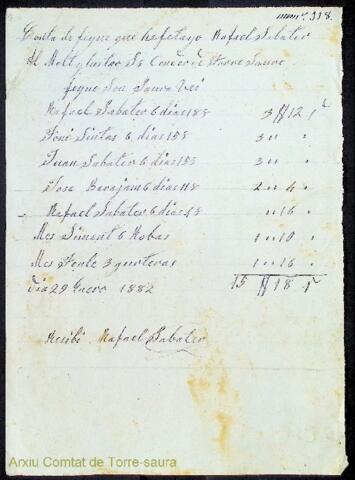 num.º 318.
Conta de feyne que ha fetayo Rafael Sabater
Al Molt Ylustor Sr Conde de Torre Saura
feyne Son Saura Vei
Rafael Sabater 6 dias 18 s 3 ₶ 12 s
Toni Sintas 6 dias 15 s 3 " "
Juan Sabater 6 dias 15 s 3 " "
Jose Barajain 6 dias 14 s 2 " 4 "
Rafael Sabater 6 dias 4 s " 16 "
Mes Siment 6 Robas 1 " 10 "
Mes 3 quorteras 1 " 16 "
Dia 29 Enero 1882 15 ₶ 18 s
Recibi Rafael Sabater
Arxiu Comtat de Torre-saura